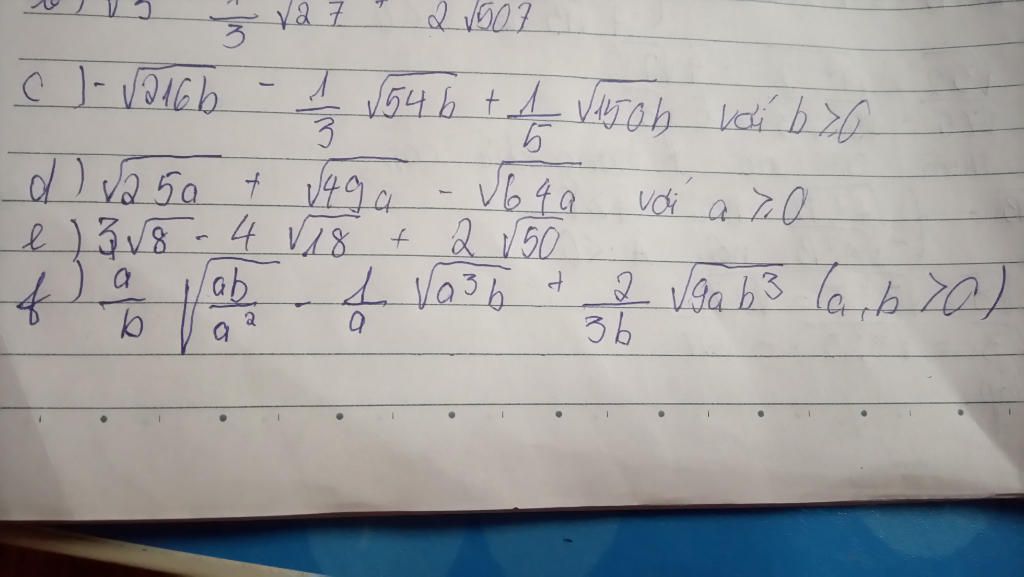 1/3 √27 + 2√507
c) -√216b - 1/3 √54b + 1/5 √150b với b ≥ 0
d) √25a + √49a - √64a với a ≥ 0
e) 3√8 - 4√18 + 2√50
f) a/b √(ab/a²) - 1/a √(a³b) + 2/3b √(9ab³) (a, b > 0)